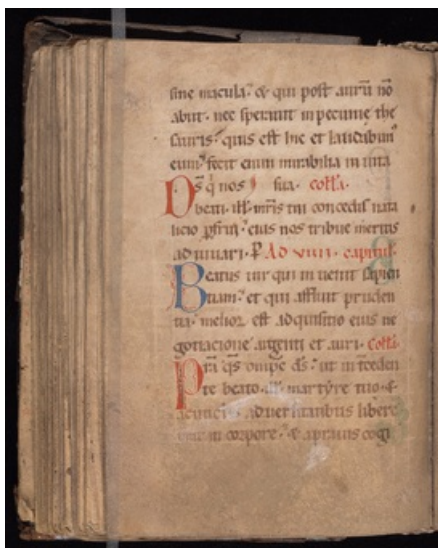 sine macula. & qui post aurū nō
abiit. nec speravit in pecunie the
sauris. quis est hic et laudabim᷒
eum. fecit enim mirabilia in vita
Ds q̇ nos sua. coll̄a.
beati. ill. mr̄is tui concedis nata
licio ꝑfrui. eius nos tribue meritis
adiuuari. P̄ Ad viiii. capitul.
Beatus vir qui inuenit sapien
tiam. et qui affluit pruden
tia. melior est adquisitio eius ne
gotiacione argenti et auri. coll̄a.
Pr̄a q̄s omp̄e d̄s. ut in t̄ceden
te beato. ill. martyre tuo. &
a cunctis aduersitatibus libere
mur in corpore. & a prauis cogi